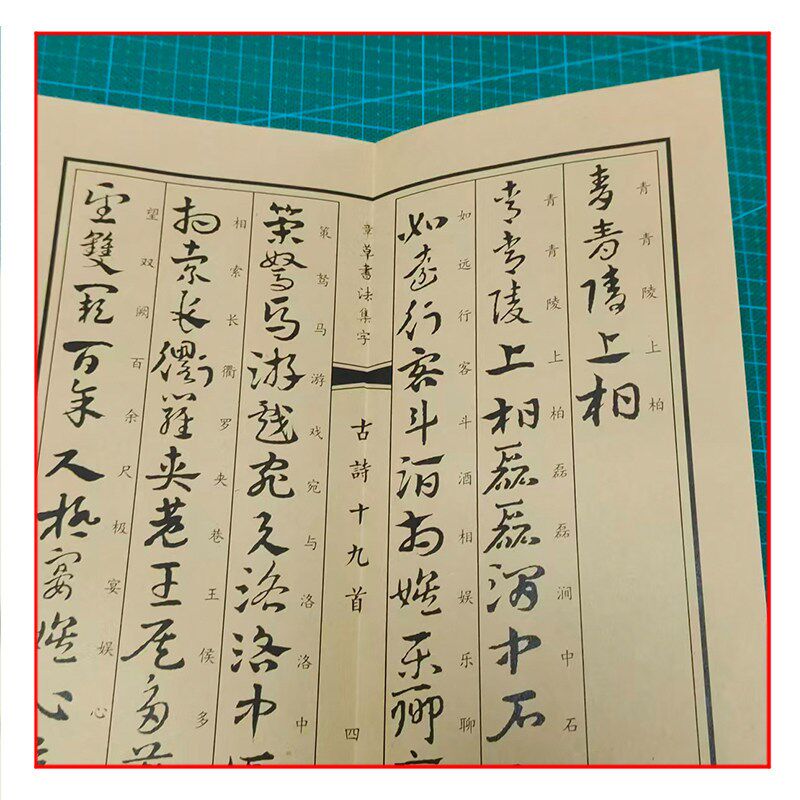 青青陵上柏
青青陵上柏
青青陵上柏磊磊澗中石
青青陵上柏磊磊涧中石
如遠行客斗酒相娱樂聊
如远行客斗酒相娱乐聊
章草書法集字
古詩十九首
四
策駑馬游戲宛与洛洛中
策驽马游戏宛与洛洛中
相索長衢羅夾巷王侯多
相索长衢罗夹巷王侯多
望雙闕百余尺極宴娱心
望双阙百余尺极宴娱心